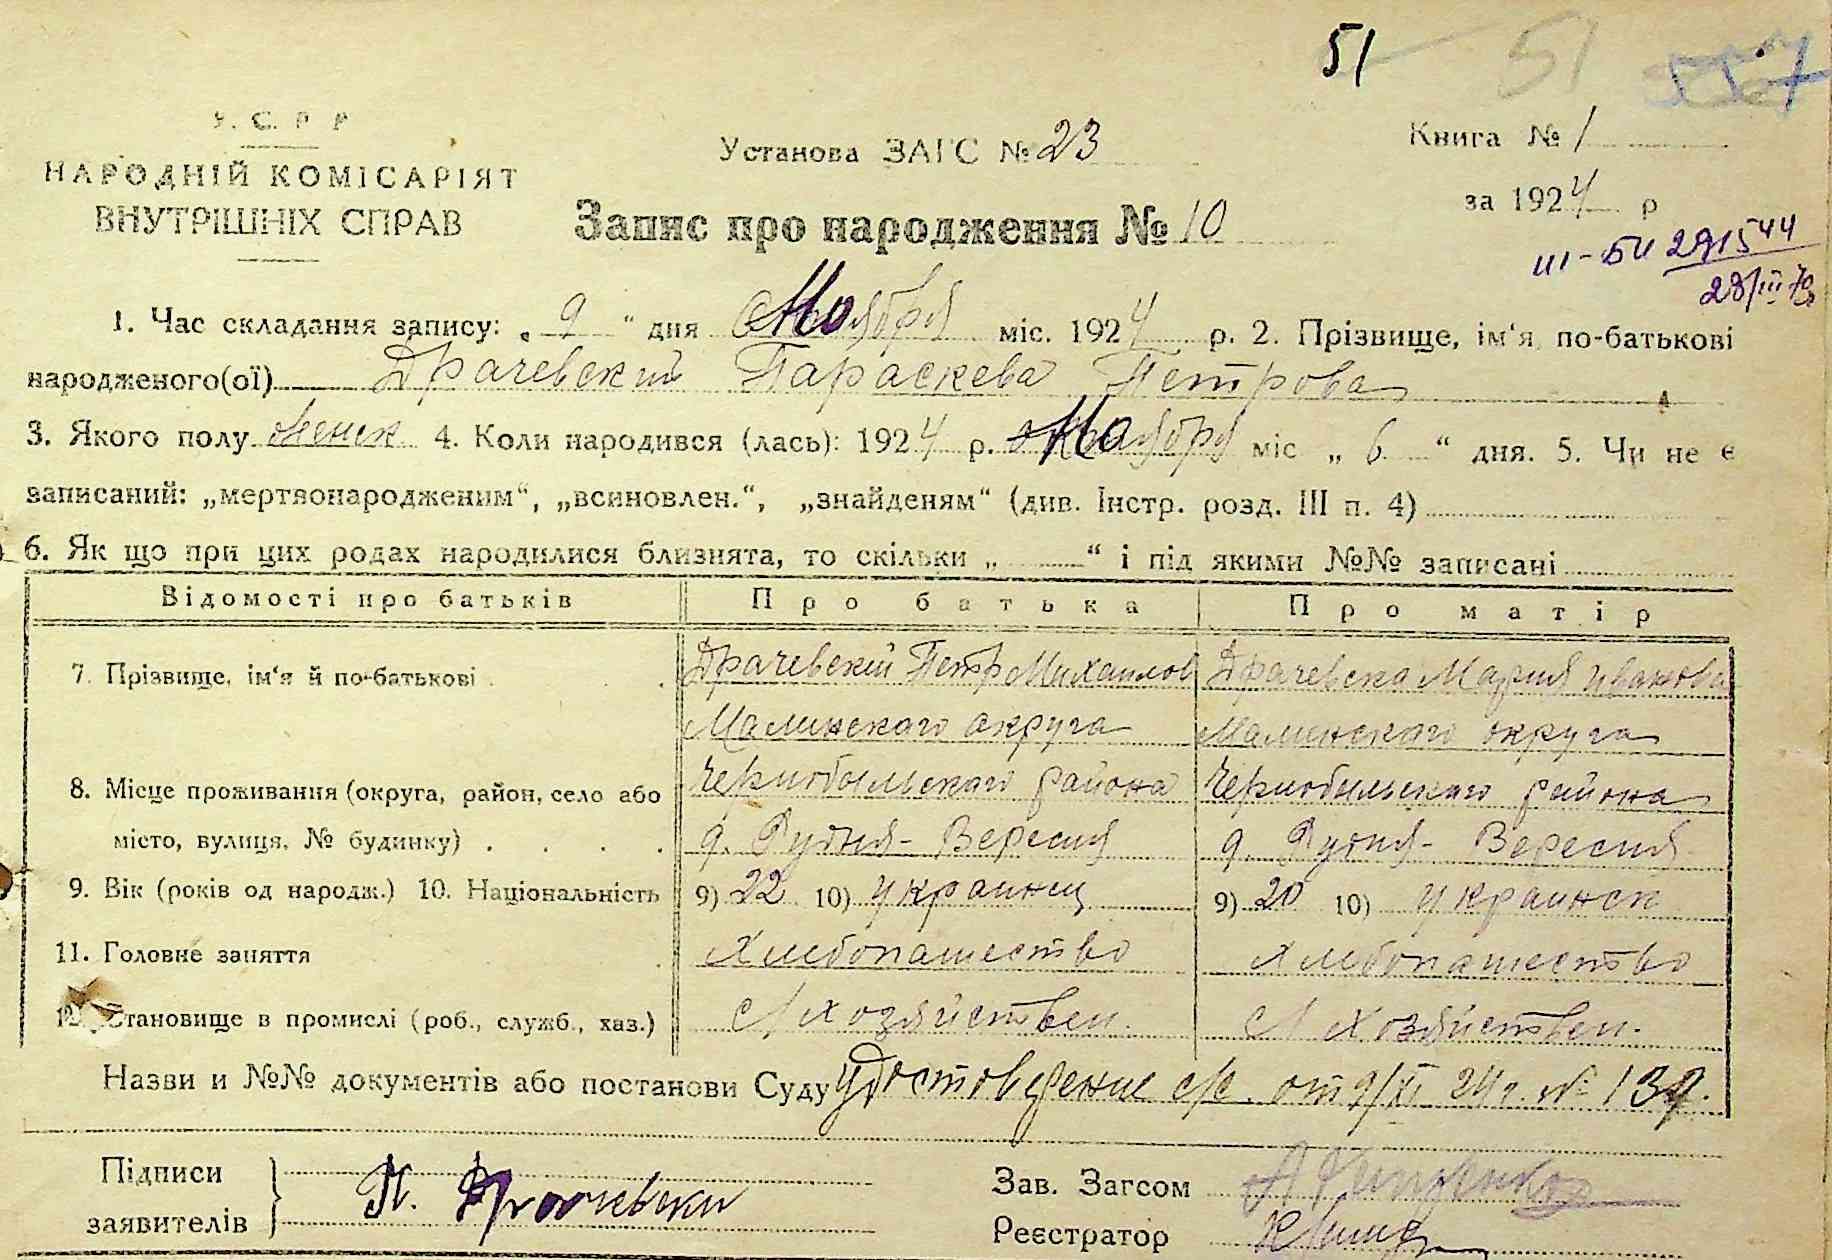 51 51 557
У. С. Р. Р.
НАРОДНІЙ КОМІСАРІЯТ
ВНУТРІШНІХ СПРАВ
Установа ЗАГС № 23
Запис про народження № 10
Книга № 1
за 1924 р
III-БИ 291544
28/III-79
1. Час складання запису: „ 9 “ дня Ноября міс. 1924 р. 2. Прізвище, ім‘я, по-батькові
народженого(ої) Драчевский Параскева Петрова
3. Якого полу женск 4. Коли народився (лась): 1924 р. Ноября міс „ 6 “ дня. 5. Чи не є
записаний: „мертвонародженим“, „всиновлен.“, „знайденям“ (див. Інстр. розд. III п. 4)
6. Як що при цих родах народилися близнята, то скільки „ “ і під якими №№ записані
Відомості про батьків Про батька Про матір
7. Прізвище, ім‘я й по-батькові Драчевскій Петр Михаилов Драчевска Мария Иванова
Малинскаго округа Малинскаго округа
8. Місце проживання (округа, район, село або Чернобыльскаго района Чернобыльскаго района
місто, вулиця, № будинку) . . . . д. Рудня-Вересня д. Рудня-Вересня
9. Вік (років од народж.) 10. Національність 9) 22 10) украинец 9) 20 10) украинск
11. Головне заняття Хлебопашество Хлебопашество
12. Становище в промислі (роб., служб., хаз.) С/Хозяйствен. С/Хозяйствен.
Назви и №№ документів або постанови Суду Удостоведение с/с. от 9/XI 24 г. № 139.
Підписи
заявителів
П. Драчевски
Зав. Загсом
Реєстратор